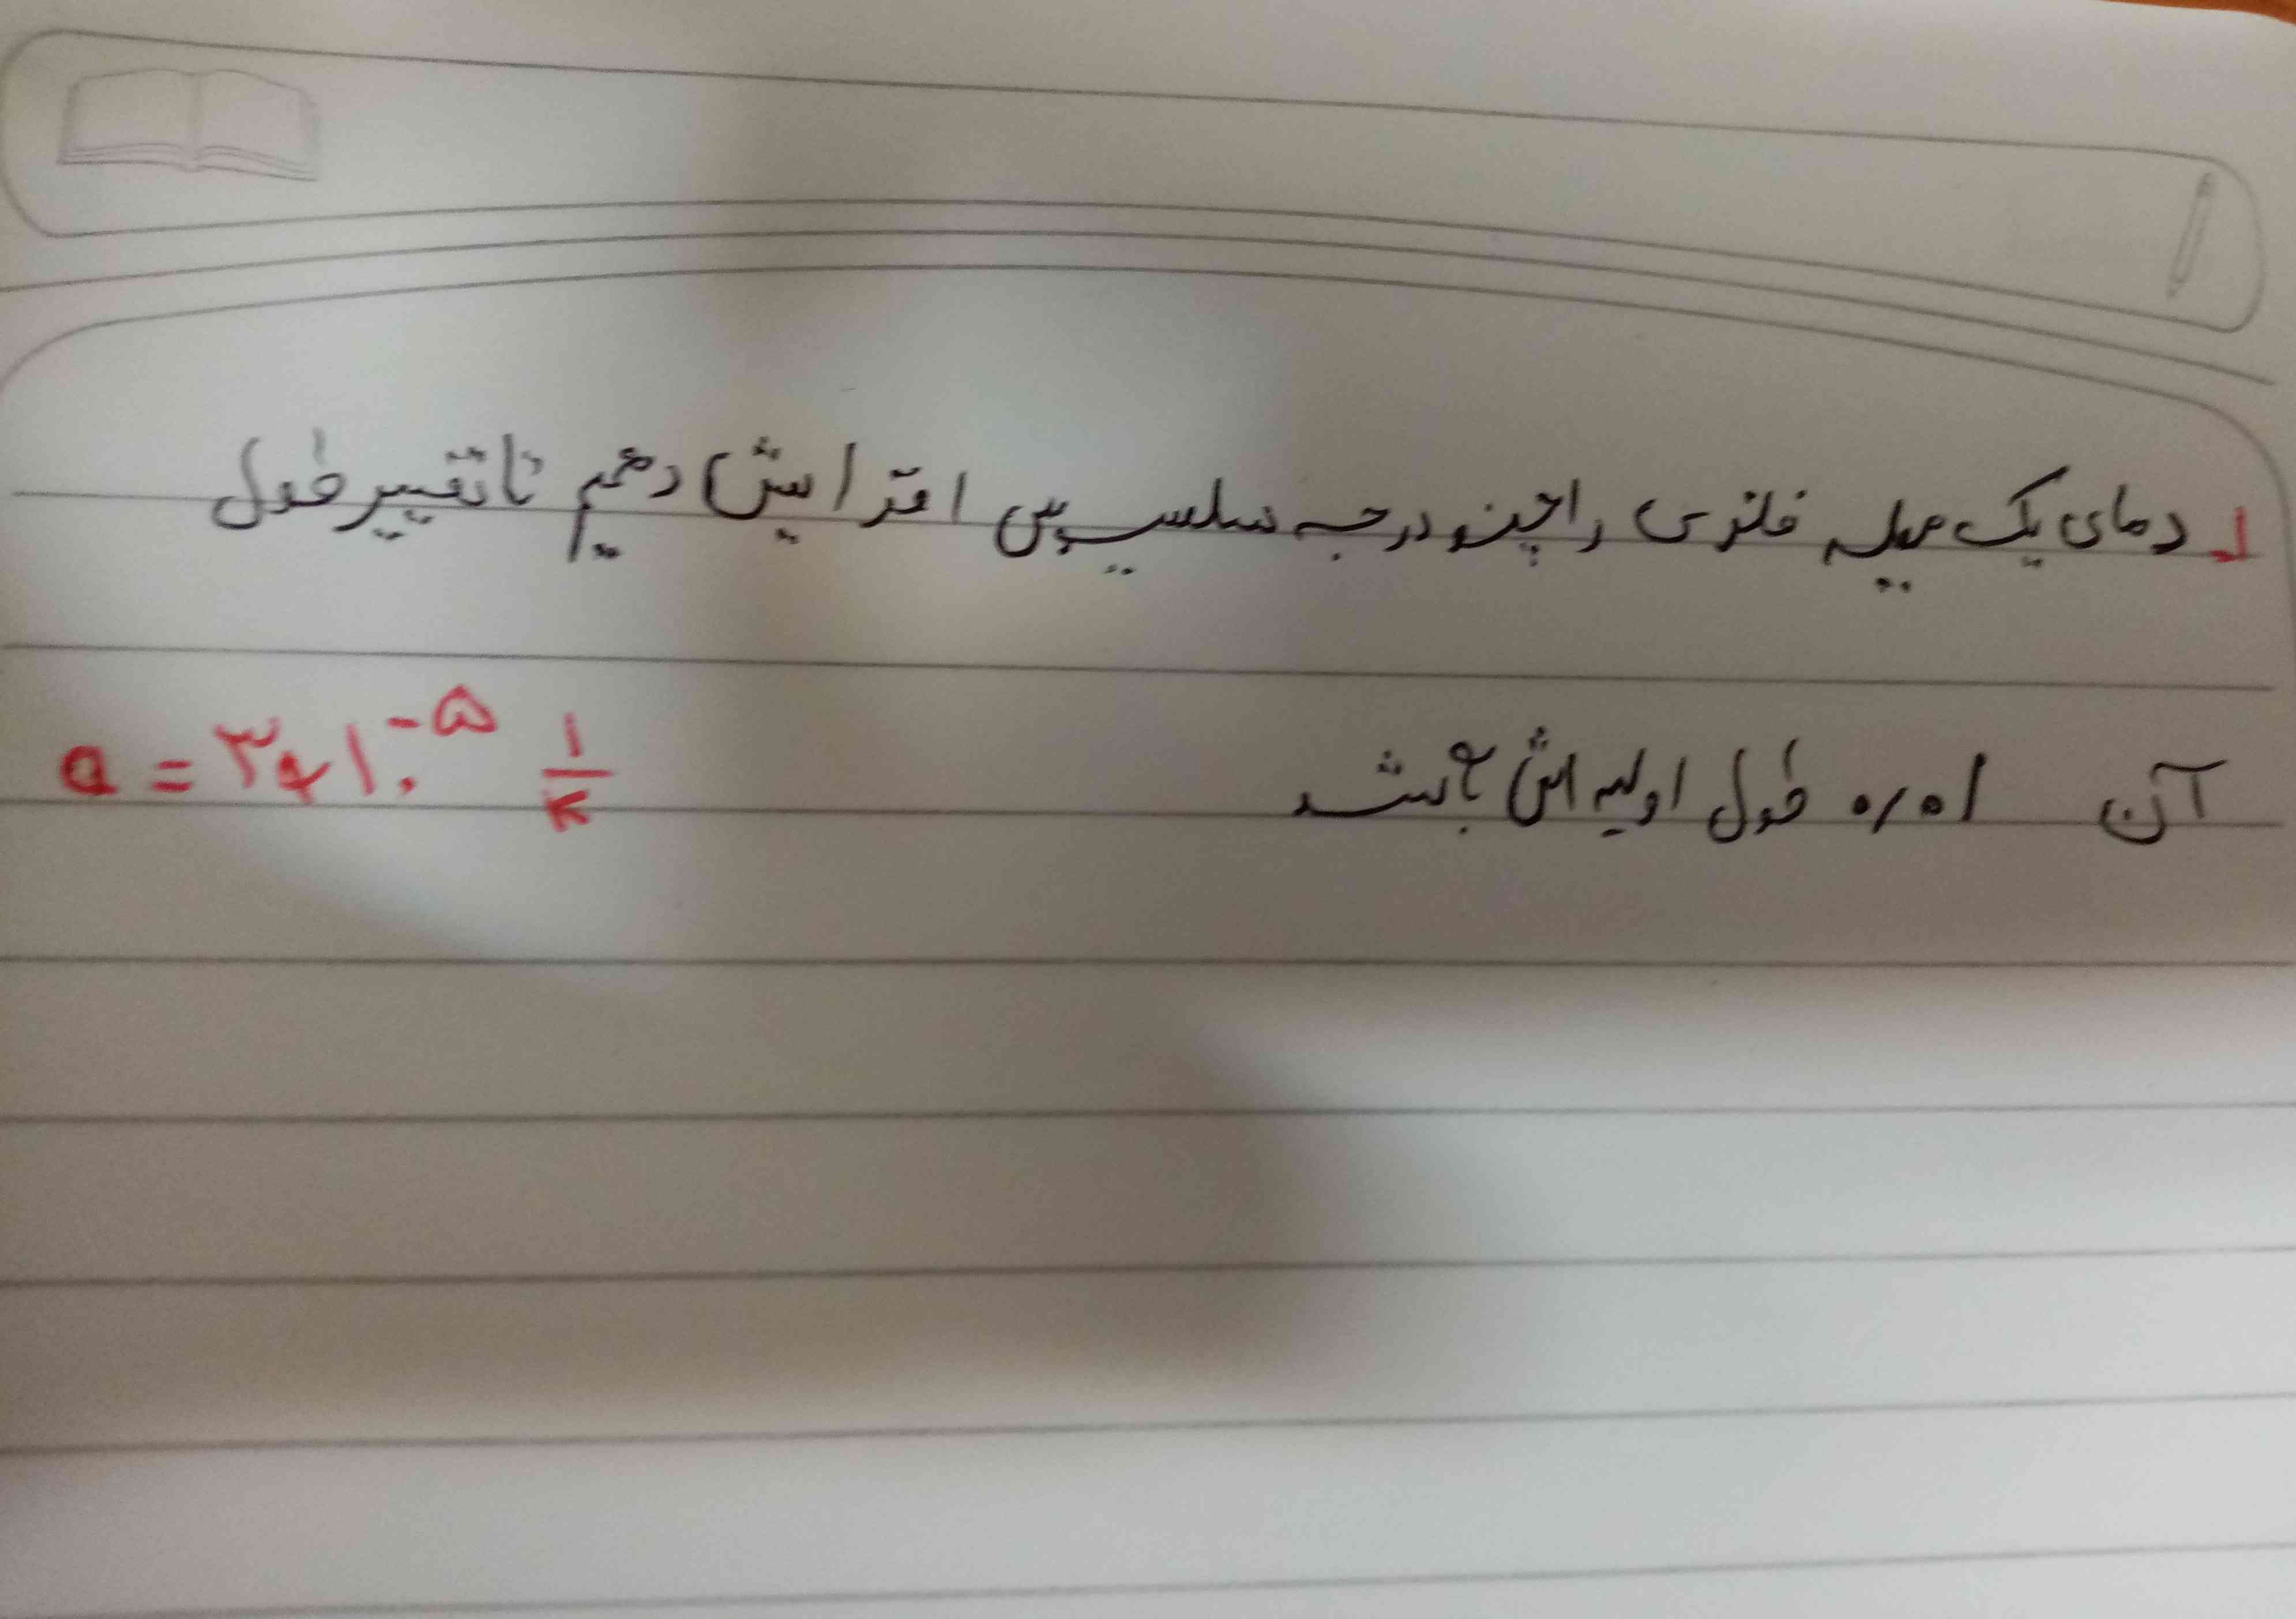 ۱ـ دمای یک میله فلزی را چند درجه سلسیوس افزایش دهیم تا تغییر طول
آن ۰/۰۱ طول اولیه اش باشد
a = ۳×۱۰^-۵ ۱/K